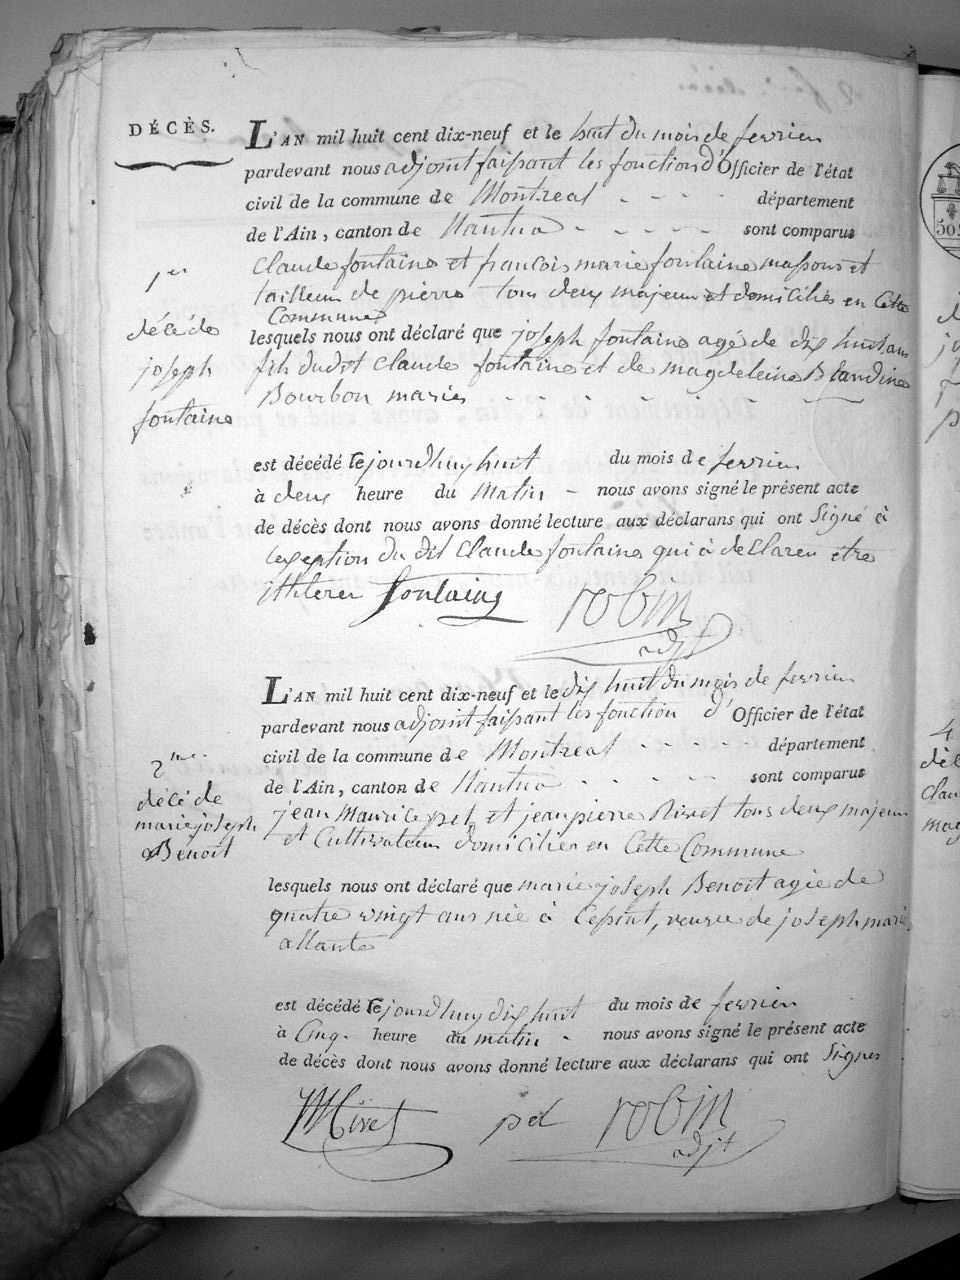 DÉCÈS.
L'AN mil huit cent dix-neuf et le huit du mois de fevrier
pardevant nous adjoint faisant les fonction d'Officier de l'état
civil de la commune de Montreal - - - département
de l'Ain, canton de Nantua - - - - - sont comparus
Claude fontaine et francois marie fontaine massons et
tailleur de pierre tous deux majeur et domiciliés en Cette
Commune
1er
décé de
joseph
fontaine
lesquels nous ont déclaré que joseph fontaine agé de dix huit ans
fils dudit Claude fontaine et de magdeleine Blandine
Bourbon mariés - - - - - -
est décédé le jourdhuy huit du mois de fevrier
à deux heure du Matin - nous avons signé le présent acte
de décès dont nous avons donné lecture aux déclarans qui ont Signé à
lexeption du dit Claude fontaine qui à declarer etre
fontaine robin
adjt
L'AN mil huit cent dix-neuf et le dix huit du mois de fevrier
pardevant nous adjoint faisant les fonction d'Officier de l'état
civil de la commune de Montreal - - - - département
de l'Ain, canton de Nantua - - - - - sont comparus
2me
décé de
marie joseph
Benoit
jean Maurice et jean pierre Nivet tous deux majeur
et Cultivateur domicilier en Cette Commune
lesquels nous ont déclaré que marie joseph Benoit agée de
quatre vingt ans née à veuve de joseph marie
allante
est décédé le jourdhuy dix huit du mois de fevrier
à Cinq. heure du matin - nous avons signé le présent acte
de décès dont nous avons donné lecture aux déclarans qui ont Signer
robin
adjt